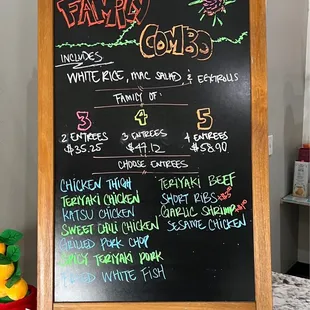 FAMILY
COMBO
INCLUDES
WHITE RICE, MAC SALAD, & EGGROLLS
FAMILY OF:
3 4 5
2 ENTREES 3 ENTREES 4 ENTREES
$35.25 $47.12 $58.90
CHOOSE ENTREES
CHICKEN THIGH TERIYAKI BEEF
TERIYAKI CHICKEN SHORT RIBS
KATSU CHICKEN GARLIC SHRIMP
SWEET CHILI CHICKEN SESAME CHICKEN
GRILLED PORK CHOP
SPICY TERIYAKI PORK
FRIED WHITE FISH